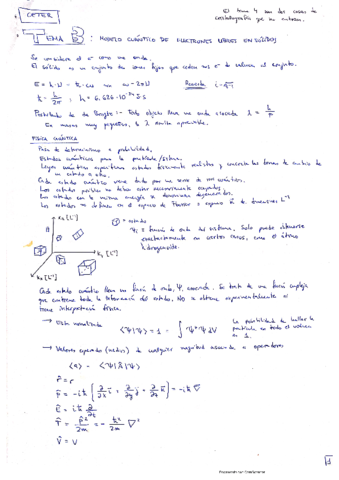 CETER
El tema 4 son dos cosas de
cristalografía que no entran.
TEMA 5 : MODELO CUÁNTICO DE ELECTRONES LIBRES EN SÓLIDOS
Se considera el e⁻ como una onda.
El sólido es un conjunto de iones fijos que ceden sus e⁻ de valencia al conjunto.
E = h·ν = ħ·ω ω = 2πν Recuerda i = √-1
ħ = h/2π ; h = 6.626·10⁻³⁴ J·s
Postulado de de Broglie: Todo objeto lleva una onda asociada λ = h/p
En masas muy pequeñas, λ es apreciable.
FÍSICA CUÁNTICA
Paso de determinismo a probabilidad.
Estados cuánticos para la partícula/sistema.
Leyes cuánticas
de un estado a otro.
Cada estado cuántico viene dado por una serie de nos cuánticos.
Los estados posibles no deben estar necesariamente ocupados.
Los estados con la misma energía se denominan degenerados.
Los estados se definen en el espacio de Fourier = espacio k de dimensiones L⁻¹
k₃ [L⁻¹]
= estado
Ψ = función de onda del sistema. Solo puede obtenerse
exactamente en ciertos casos, como el átomo
hidrogenoide.
k₂ [L⁻¹]
k₁ [L⁻¹]
Cada estado cuántico lleva una función de onda, Ψ, asociada. Se trata de una función compleja
que contiene toda la información del estado. NO se obtiene experimentalmente ni
tiene interpretación física.
→ Está normalizada
⟨Ψ|Ψ⟩ = 1 = ∫ Ψ*Ψ dV
La posibilidad de hallar la
partícula en todo el volumen
es 1.
→ Valores esperados (medios) de cualquier magnitud asociada a operadores
⟨a⟩ = ⟨Ψ|Â|Ψ⟩
r̂ = r
p̂ = -iħ [∂/∂x i + ∂/∂y j + ∂/∂z k] = -iħ ∇
Ê = iħ ∂/∂t
T̂ = p̂²/2m = - ħ²/2m ∇²
V̂ = V
1